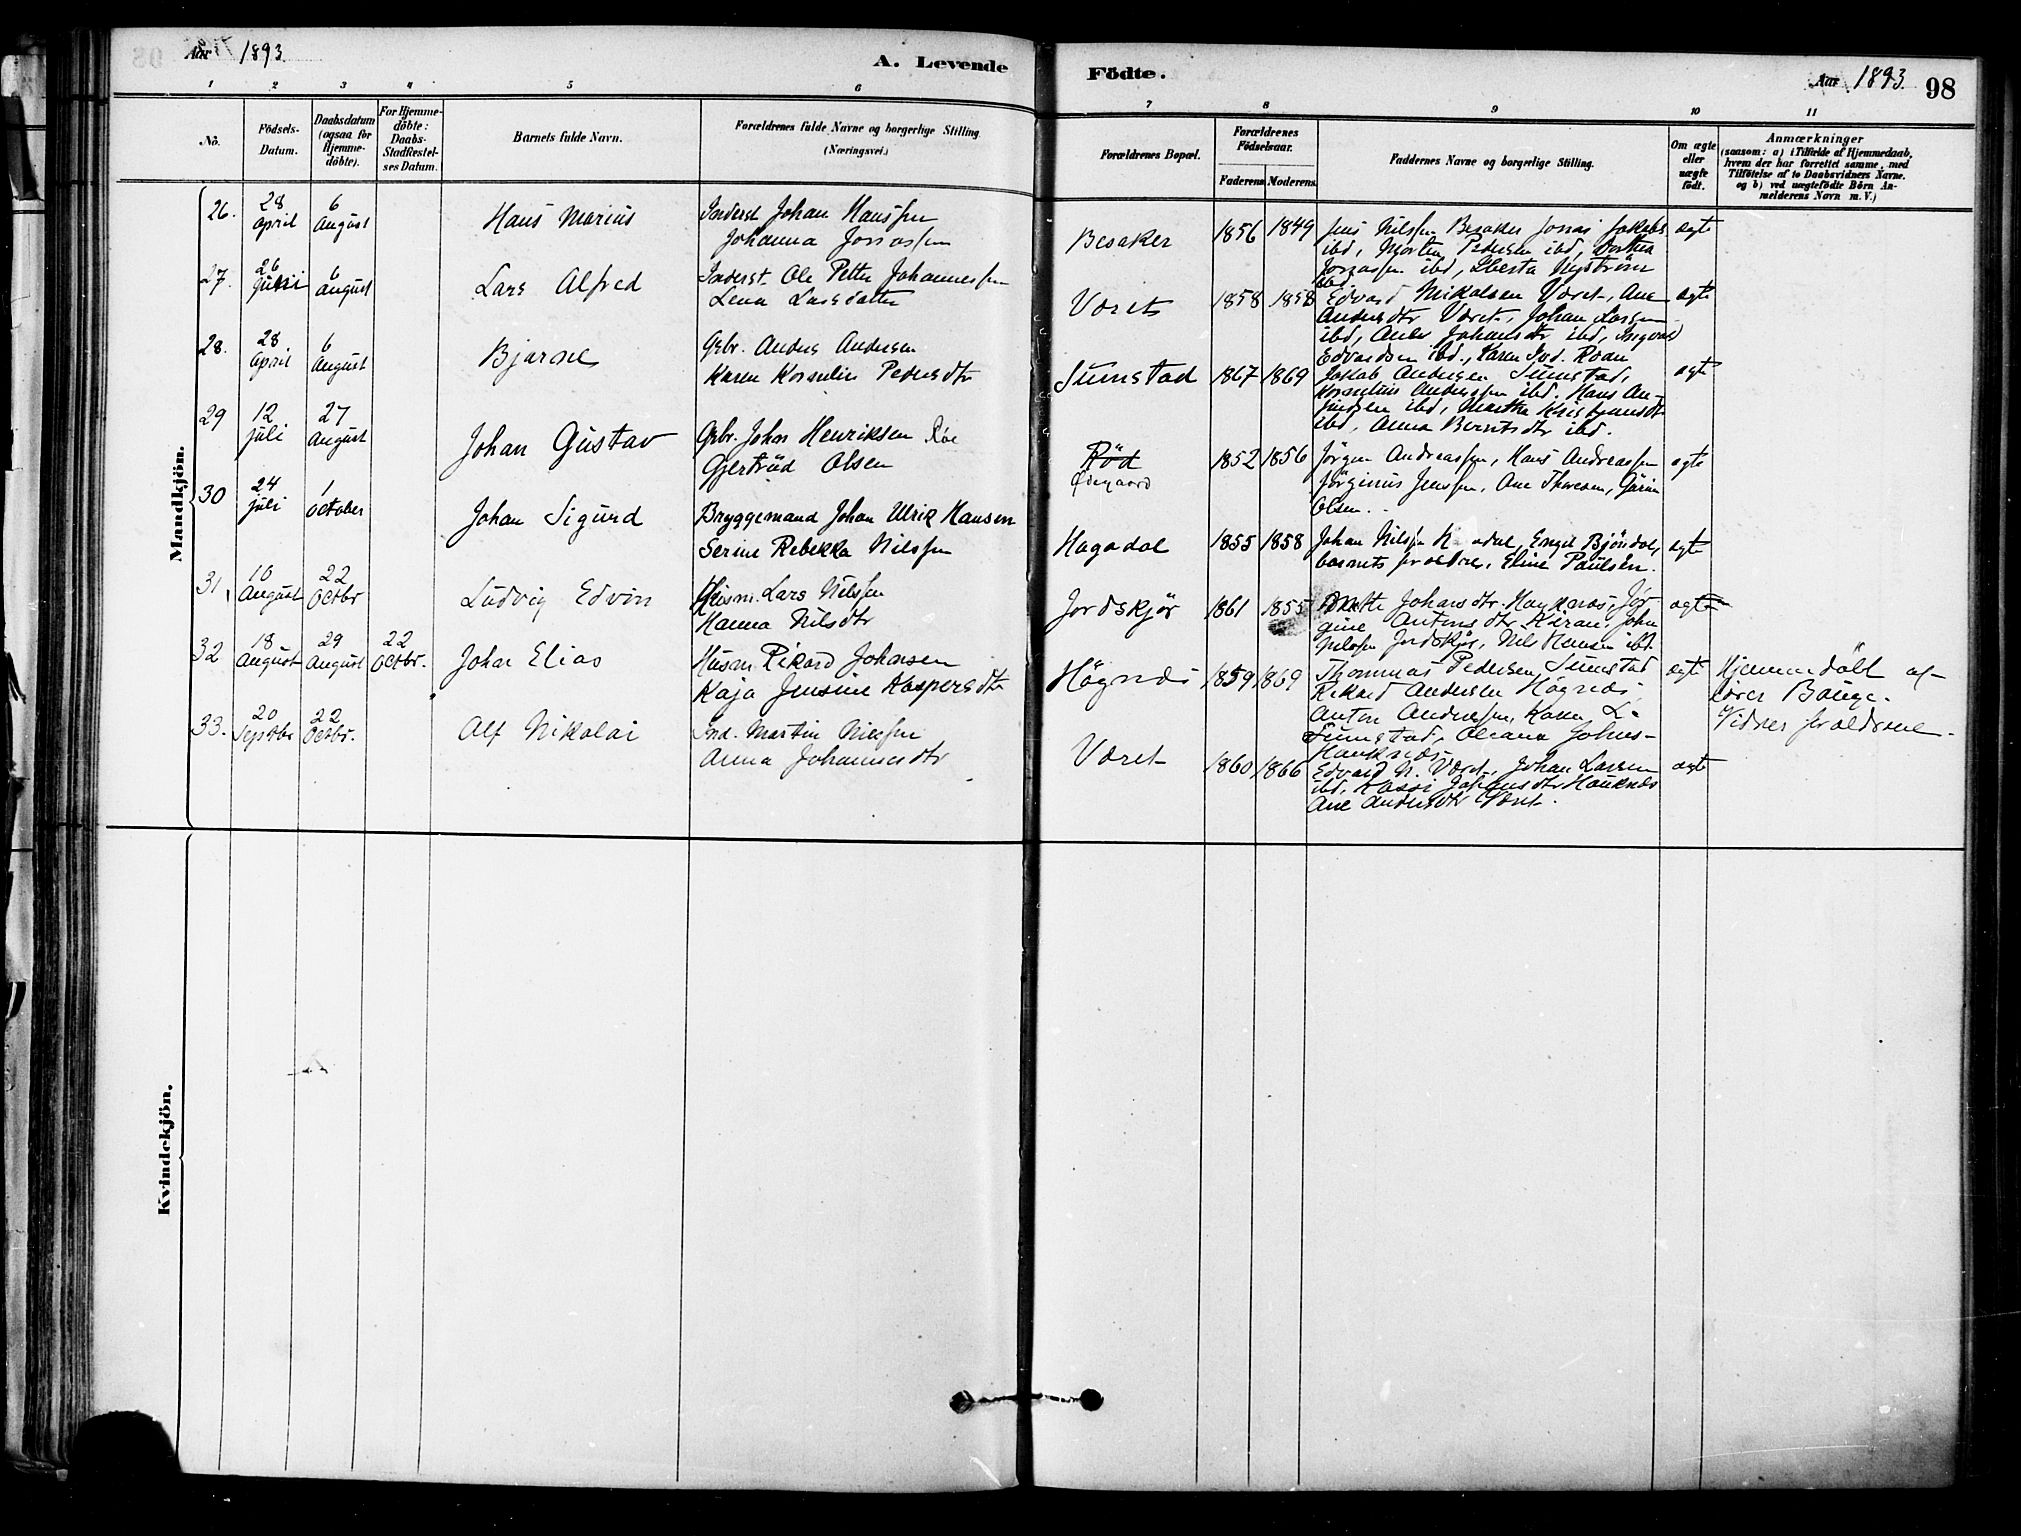 Aar 1893.
A. Levende Födte.
Aar 1893. 98
1 2 3 4 5 6 7 8 9 10 11
No.
Födsels-Datum.
Daabsdatum (ogsaa for Hjemme-döbte).
For Hjemme-döbte: Daabs-Stadfæstel-ses Datum.
Barnets fulde Navn.
Forældrenes fulde Navne og borgerlige Stilling (Næringsvei.)
Forældrenes Bopæl.
Forældrenes Födselsaar.
Faderens Moderens
Faddernes Navne og borgerlige Stilling.
Om ægte eller uægte födt.
Anmærkninger
(saasom: a) i Tilfælde af Hjemmedaab,
hvem der har forrettet samme, med
Tilföielse af to Daabsvidners Navne.
og b) ved uægtefödte Börn An-
melderens Navn m. V.)
Mandkjön.
26. 28 april 6 August Hans Marius
Inderst Johan Hanssen
Johanna Jonassen
Besaker 1856 1849
Jens Nilssen Besaker Jonas Jakobs
ibd, Morten Pedersen ibd, Dorthea
Jonassen ibd, Nyström
ibd
ægte
27. 26 6 august Lars Alfred
Inderst. Ole Petter Johannessen
Lena Larsdatter
Været 1858 1858
Edvard Nikolsen Været, Ane
Andersdtr Været, Johan Larsen
ibd, Johansdtr ibd, Ingvar
Edvardsen ibd., Karen Roan
ægte
28. 28 april 6 August Bjarne
Gbr. Anders Andersen
Karen Kornelia Pedersdtr
Sumstad 1867 1869
Jakob Andersen Sumstad,
Kornelius Anderssen ibd. Hans An-
ibd, Martha
ibd, Anna Berntsdtr ibd.
ægte
29 12 juli 27 August Johan Gustav
Gbr. Johan Henriksen
Gjertrud Olsen
Röd
Ödegaard 1852 1856
Jörgen Andreassen, Hans Andreassen
Jörginus Jenssen, Ane Thoresen,
Olsen.
ægte
30 24 juli 1 october Johan Sigurd
Bryggemand Johan Ulrik Hansen
Serine Rebekka Nilssen
Hagadal 1855 1858
Johan Nilsen Björndal,
barnets forældre, Eline Paulsen.
ægte
31. 10 August 22 Octbr Ludvig Edvin
Husm. Lars Nilssen
Hanna Nilsdtr
Jordskjör 1861 1855
Johansdtr. Hauknes, Jör-
gine Antonsdtr Kiran, John
Nilssen Jordskjör, Nils Hansen ibd.
ægte
32 18 August 29 August 22 Octbr. Johan Elias
Husm. Rikard Johnsen
Kaja Jensine Kaspersdtr
Högnæs 1859 1869
Thommas Pedersen Sumstad
Rikard Andersen Högnæs
Anton Andersen, Karen L.
Sumstad, Oleana Johns-
Hauknæs
ægte
Hjemmedöbt af
lærer Bange.
Vidner forældrene.
33. 20 Septbr 22 Octbr. Alf Nikolai
Ind. Martin Nilssen
Anna Johannesdtr
Været 1860 1866
Edvard N. Været, Johan Larsen
ibd, Johansdtr Hauknæs
Ane Andersdtr Været.
ægte
Kvindekjön.